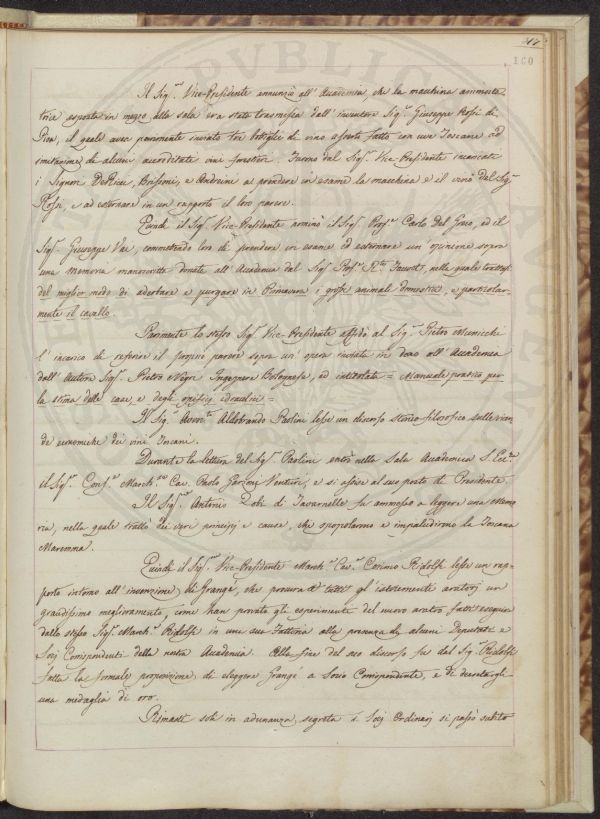 217
160
Il Sig.r Vice-Presidente annunziò all' Accademia, che la macchina ammosta
trice esposta in mezzo alla sala era stata trasmessa dall' inventore Sig.r Giuseppe Rossi di
Pisa, il quale aver parimente inviato tre bottiglie di vino asserto fatto con uve Toscane ed
imitazione di alcuni accreditati vini forestieri. Furono dal Sig.r Vice-Presidente incaricati
i Signori DeRicci, Brisconi, e Andreini a prendere in esame la macchina e il vino del Sig.r
Rossi, e ad esternare in un rapporto il loro parere.
Quindi il Sig.r Vice-Presidente nominò il Sig.r Prof.re Carlo Del Greco, ed il
Sig.r Giuseppe Vai, commettendo loro di prendere in esame ed esternare un' opinione sopra
una memoria manoscritta donata all' Accademia dal Sig.r Prof.re nella quale trattasi
del miglior modo di aderbare e purgare in Primavera i grossi animali domestici e particolar-
mente il cavallo.
Parimente lo stesso Sig.r Vice-Presidente affidò al Sig.r Pietro Municchi
l' incarico di referire il proprio parere sopra un' opera inviata in dono all' Accademia
dall' Autore Sig.r Pietro Negri Ingegnere Bolognese, ed intitolata = Manuale pratico per
la stima delle case, e degli opifizj idraulici =
Il Sig.r Avvo.to Aldobrando Paolini lesse un discorso storico-filosofico sulle vicen
de economiche dei vini Toscani.
Durante la lettura del Sig.r Paolini entrò nella Sala Accademica S. Ecc.za
il Sig.r Cons.re March.se Cav. Paolo Garzoni Venturi, e si assise al suo posto di Presidente.
Il Sig.r Antonio Zobi di Tavarnelle fu ammesso a leggere una Memo
ria, nella quale trattò dei veri principj e cause, che spopolarono e impaludirono la Toscana
Maremma.
Quindi il Sig.r Vice-Presidente March.e Cav. Cosimo Ridolfi lesse un rap-
porto intorno all' invenzione di Grangé, che procura a tutti gl' istrumenti aratorj un
grandissimo miglioramento, come han provato gli esperimenti del nuovo aratro fatti eseguire
dallo stesso Sig.r March.e Ridolfi in una sua Fattoria alla presenza di alcuni Deputati e
Socj Corrispondenti della nostra Accademia. Alla fine del suo discorso fu dal Sig.r Ridolfi
fatta la formale proposizione di eleggere Grangé a Socio Corrispondente, e di decretargli
una medaglia di oro.
Rimasti soli in adunanza segreta i Socj Ordinarj si passò subito